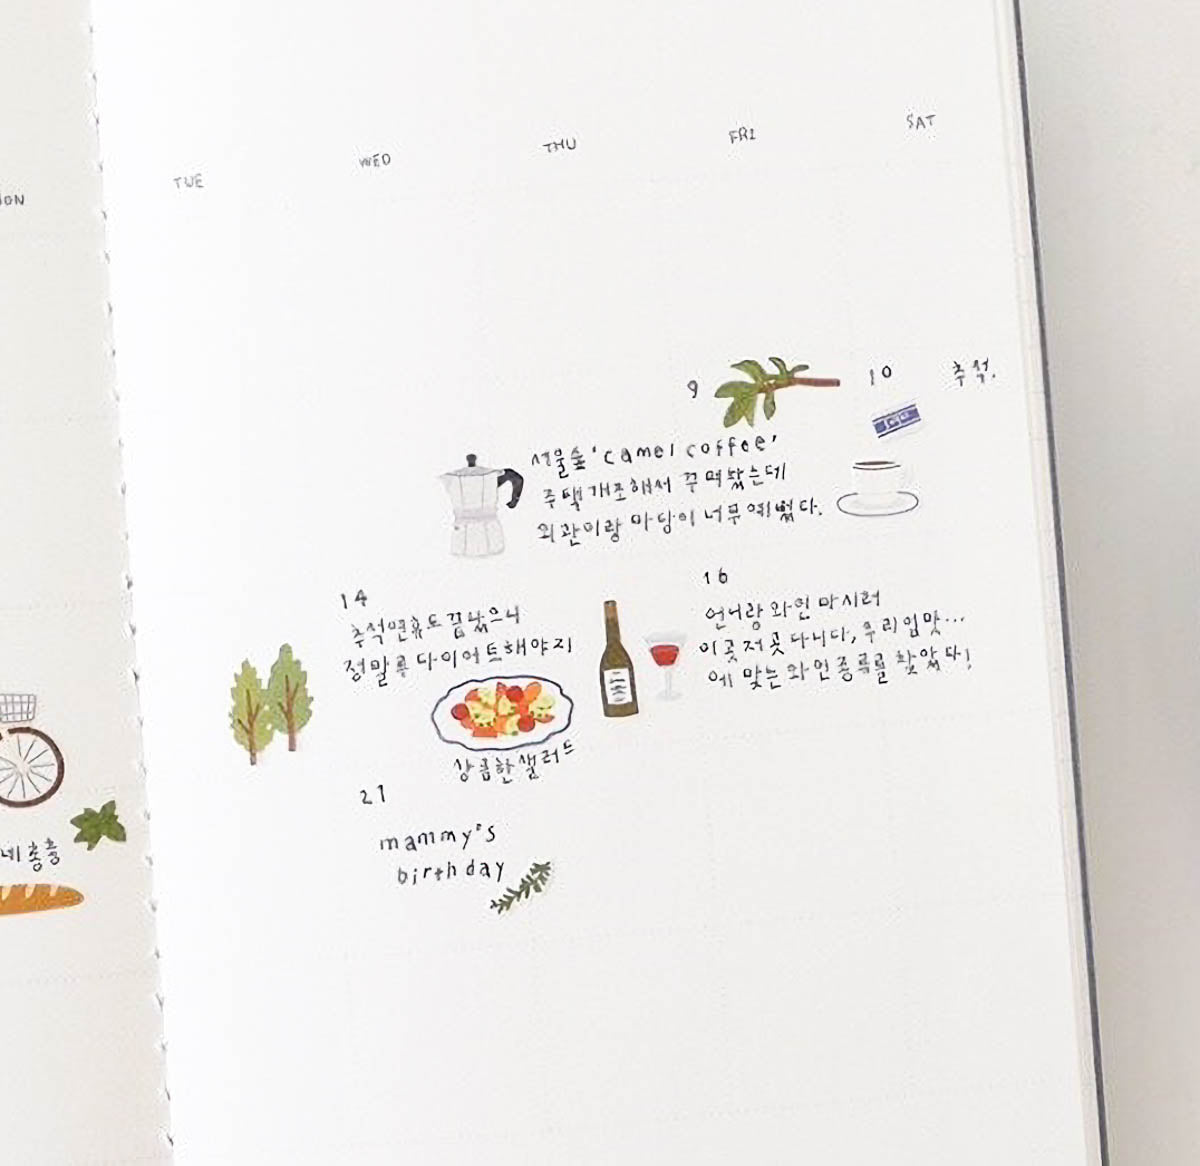 TWE
WED
THU
FRI
SAT
ION
9
10
추석.
서울숲 'camel coffee'
주택개조해서 꾸며놨는데
외관이랑 마당이 너무 예뻤다.
14
추석연휴도 끝났으니
정말루 다이어트해야지
상큼한 샐러드
16
언니랑 와인 마시러
이곳저곳 다니다, 우리 입맛...
에 맞는 와인종류를 찾았다!
21
mammy's
birthday
네 총총